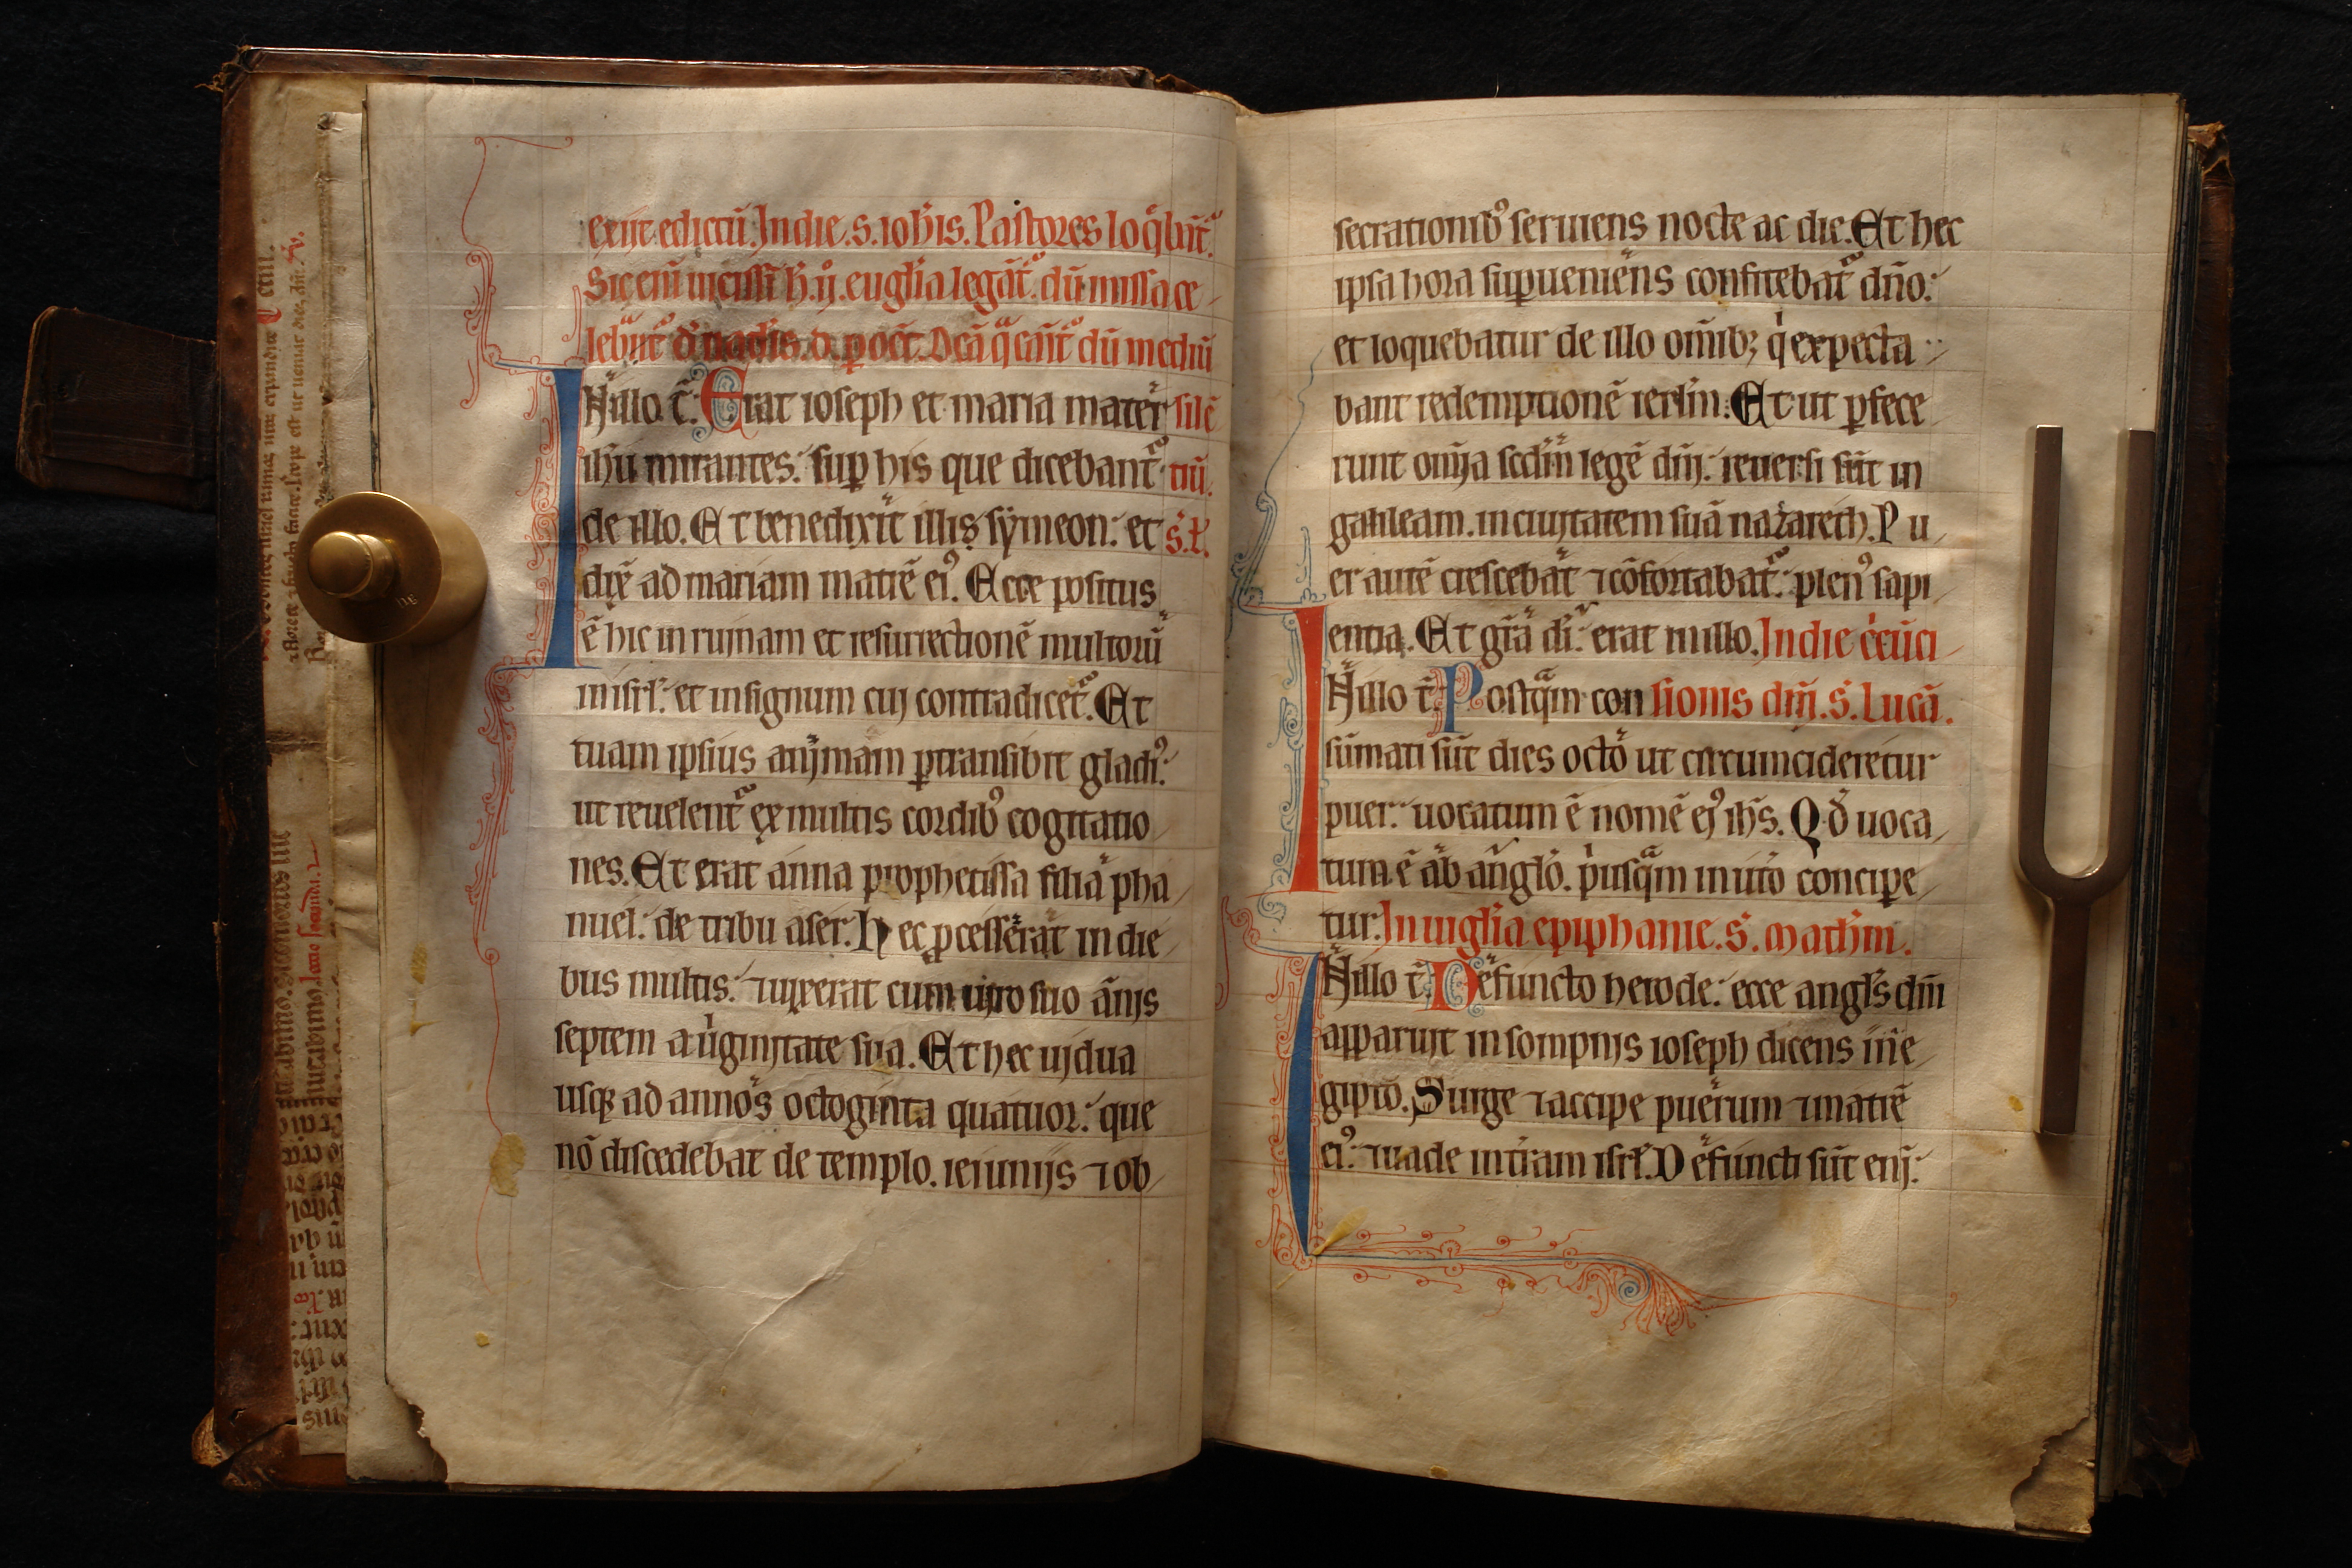 exijt edictū. In die. s. ioħis. Pastores loq̄bant̄ʳ.
Sic enī
euglia legāt̄. dū missa ce
dū mediū
N illo t̄. Erat ioseph et maria mater silē
ihū mirantes. sup his que dicebant̄ʳ tiū.
de illo. Et benedixit illis sẏmeon. et s̄. l.
dix̄ ad mariam matrē ei⁹. Ecce positus
ē hic in ruinam et resurrectionē multorū
in isrl. et in signum cui contradicet̄ʳ. Et
tuam ipsius animam ꝑtransibit gladi⁹.
ut reuelent̄ʳ ex multis cordib⁹ cogitatio
nes. Et erat anna prophetissa filia pha
nuel. de tribu aser. Hec ꝓcesserat in die
bus multis. ⁊ uixerat cum uiro suo ānis
septem a uirginitate sua. Et hec uidua
usqꝫ ad annos octoginta quatuor. que
nō discedebat de templo. ieiunijs ⁊ ob
secrationib⁹ seruiens nocte ac die. Et hec
ipsa hora supueniens confitebat̄ʳ dn̄o.
et loquebatur de illo om̄ibꝫ q̇ expecta
bant redemptionē ierl̄m. Et ut ꝑfece
runt om̄ia scd̄m legē dn̄i. reuersi sūt in
galileam. in ciuitatem suā nazareth. Pu
er autē crescebat ⁊ cōfortabat̄ʳ. plen⁹ sapi
entia. Et gr̄a di. erat in illo. In die c̄cūci
N illo t̄. Postq̄m con sionis dn̄i. s̄. Lucā.
sūmati sūt dies octo ut circumcideretur
puer. uocatum ē nomē ei⁹ ih̄s. Qd̄ uoca
tum ē ab anglo. ṗusq̄m in utō concipe
tur. In uiglia epiphanie. s̄. Mathm̄.
N illo t̄. Defuncto herode. ecce angl̄s dn̄i
apparuit in sompnijs ioseph dicens in e
gipto. Surge ⁊ accipe puerum ⁊ matrē
ei⁹. ⁊ uade in tr̄am isrl̄. Defuncti sūt eni.